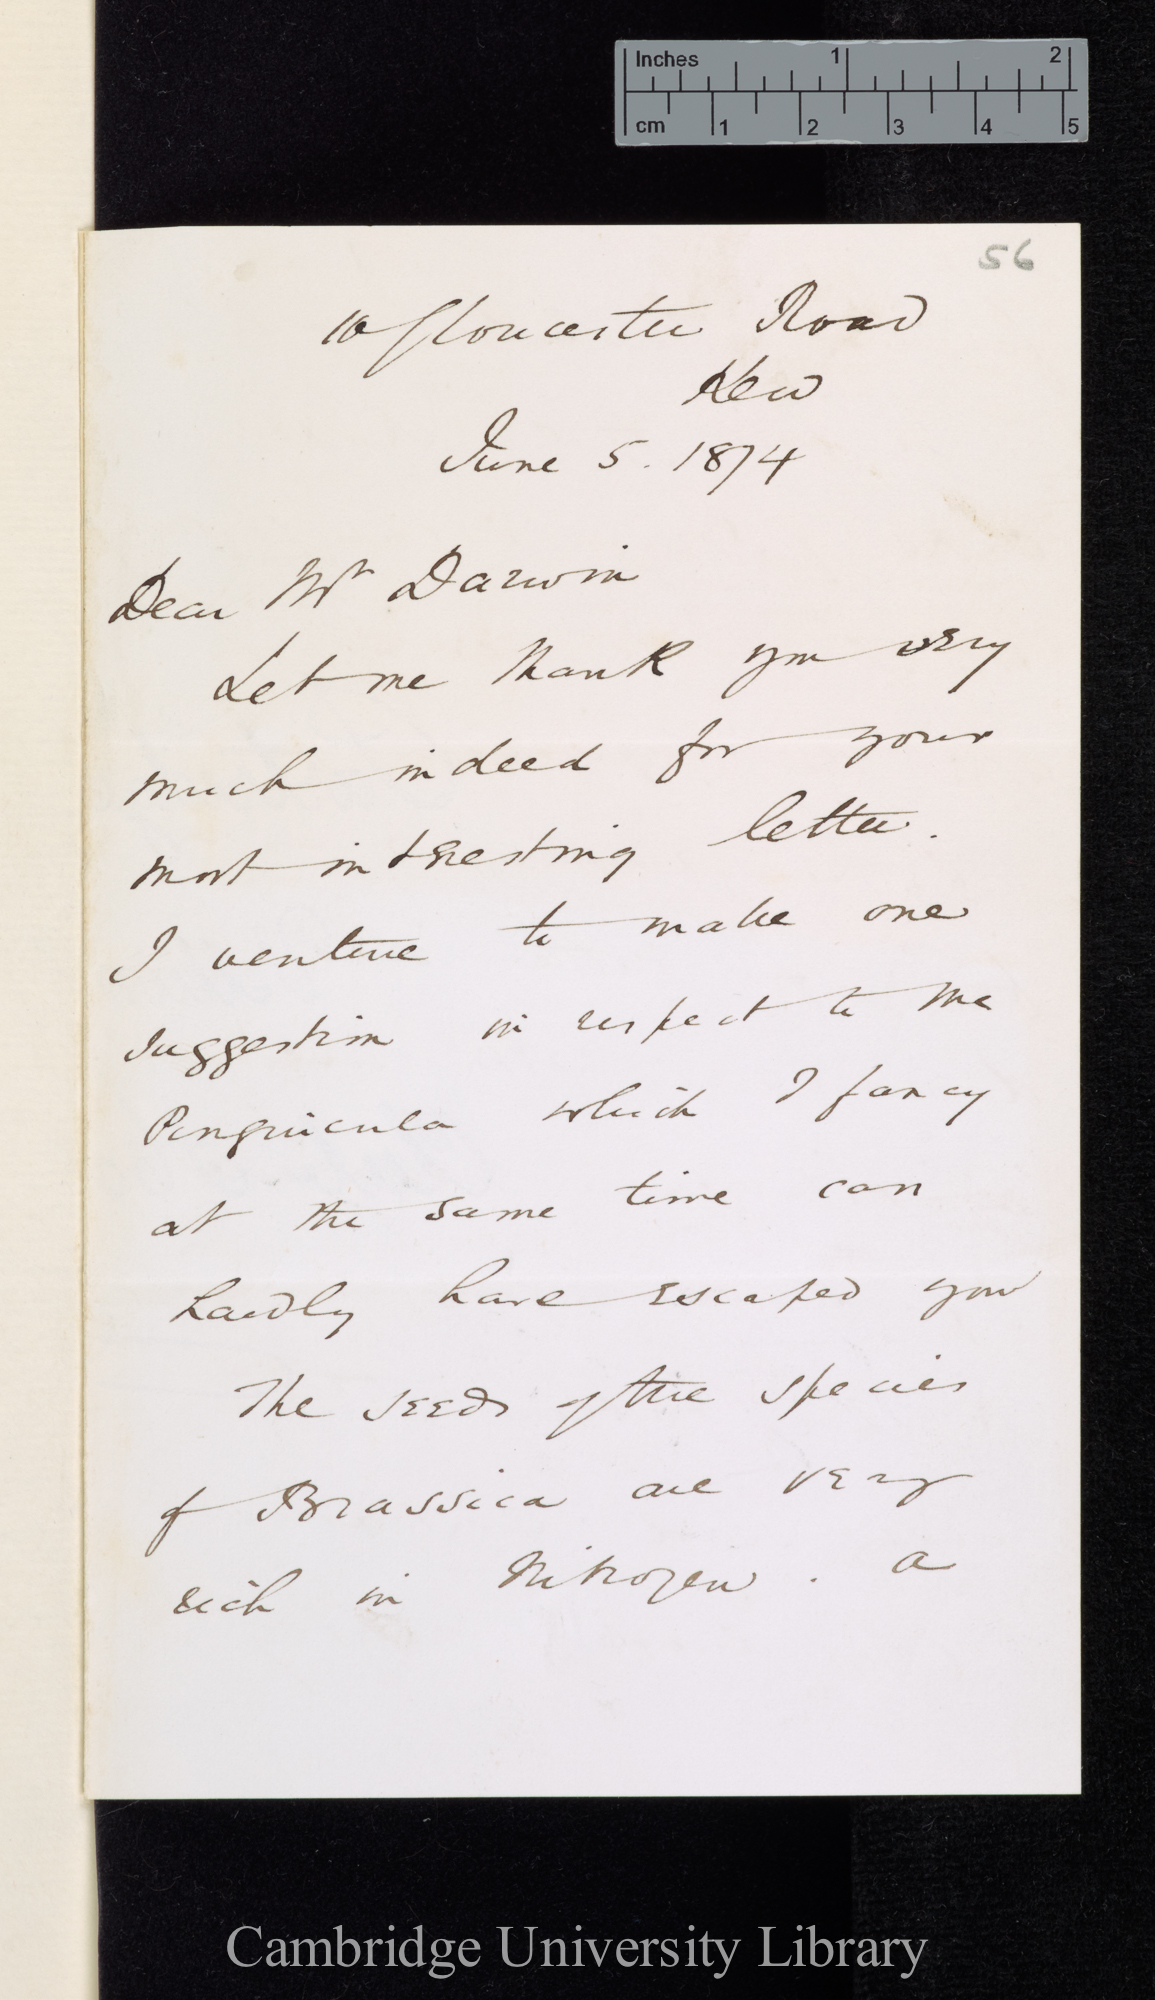 Inches 1 2
cm 1 2 3 4 5
56
10 Gloucester Road
Kew
June 5. 1874
Dear Mr Darwin
Let me thank you very
much indeed for your
most interesting letter.
I venture to make one
suggestion in respect to the
Pinguicula which I fancy
at the same time can
hardly have escaped you
The seeds of the species
of Brassica are very
rich in Nitrogen. a
Cambridge University Library